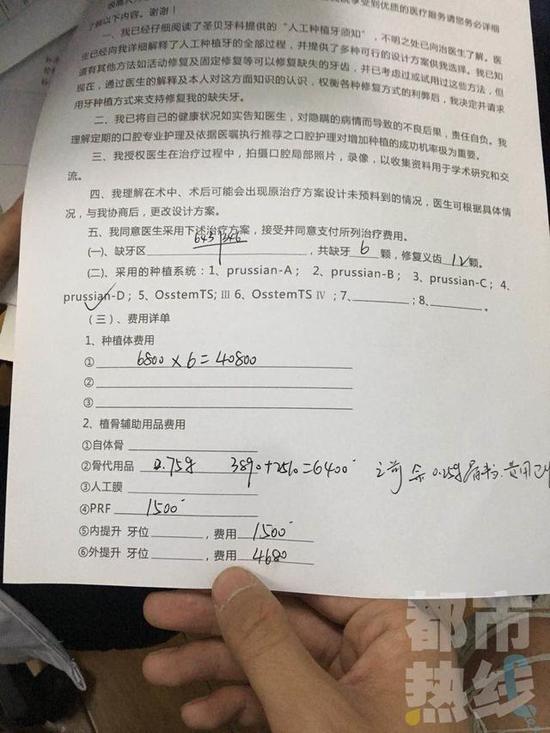 享受到优质的医疗服务请您务必详细
了解以下内容。谢谢！
一、我已经仔细阅读了圣贝牙科提供的“人工种植牙须知”，不明之处已向治医生了解。医
生已经向我详细解释了人工种植牙的全部过程，并提供了多种可行的设计方案供我选择。我已知
道有其他方法如活动修复及固定修复等可以修复缺失的牙齿，并已考虑过或试用过这些方法，但
现在，通过医生的解释及本人对这方面知识的认识，权衡各种修复方式的利弊后，我决定并请求
用牙种植方式来支持修复我的缺失牙。
二、我已将自己的健康状况如实告知医生，对隐瞒的病情而导致的不良后果，责任自负。我
理解定期的口腔专业护理及依据医嘱执行推荐之口腔护理对增加种植的成功机率极为重要。
三、我授权医生在治疗过程中，拍摄口腔局部照片，录像，以收集资料用于学术研究和交
流。
四、我理解在术中、术后可能会出现原治疗方案设计未预料到的情况，医生可根据具体情
况，与我协商后，更改设计方案。
五、我同意医生采用下述治疗方案，接受并同意支付所列治疗费用。
(一)、缺牙区 643 346，共缺牙 6 颗，修复义齿 12 颗。
(二)、采用的种植系统：1、prussian-A； 2、prussian-B； 3、prussian-C；4、
prussian-D；5、OsstemTS; Ⅲ 6、OsstemTS Ⅳ；7、；8、。
(三)、费用详单
1、种植体费用
① 6800×6=40800
②
③
2、植骨辅助用品费用
①自体骨
②骨代用品 0.75g 3890+2510=6400 之前 余 0.25g骨粉.费用已
③人工膜
④PRF 1500
⑤内提升 牙位，费用 1500
⑥外提升 牙位，费用 4680
都市
热线